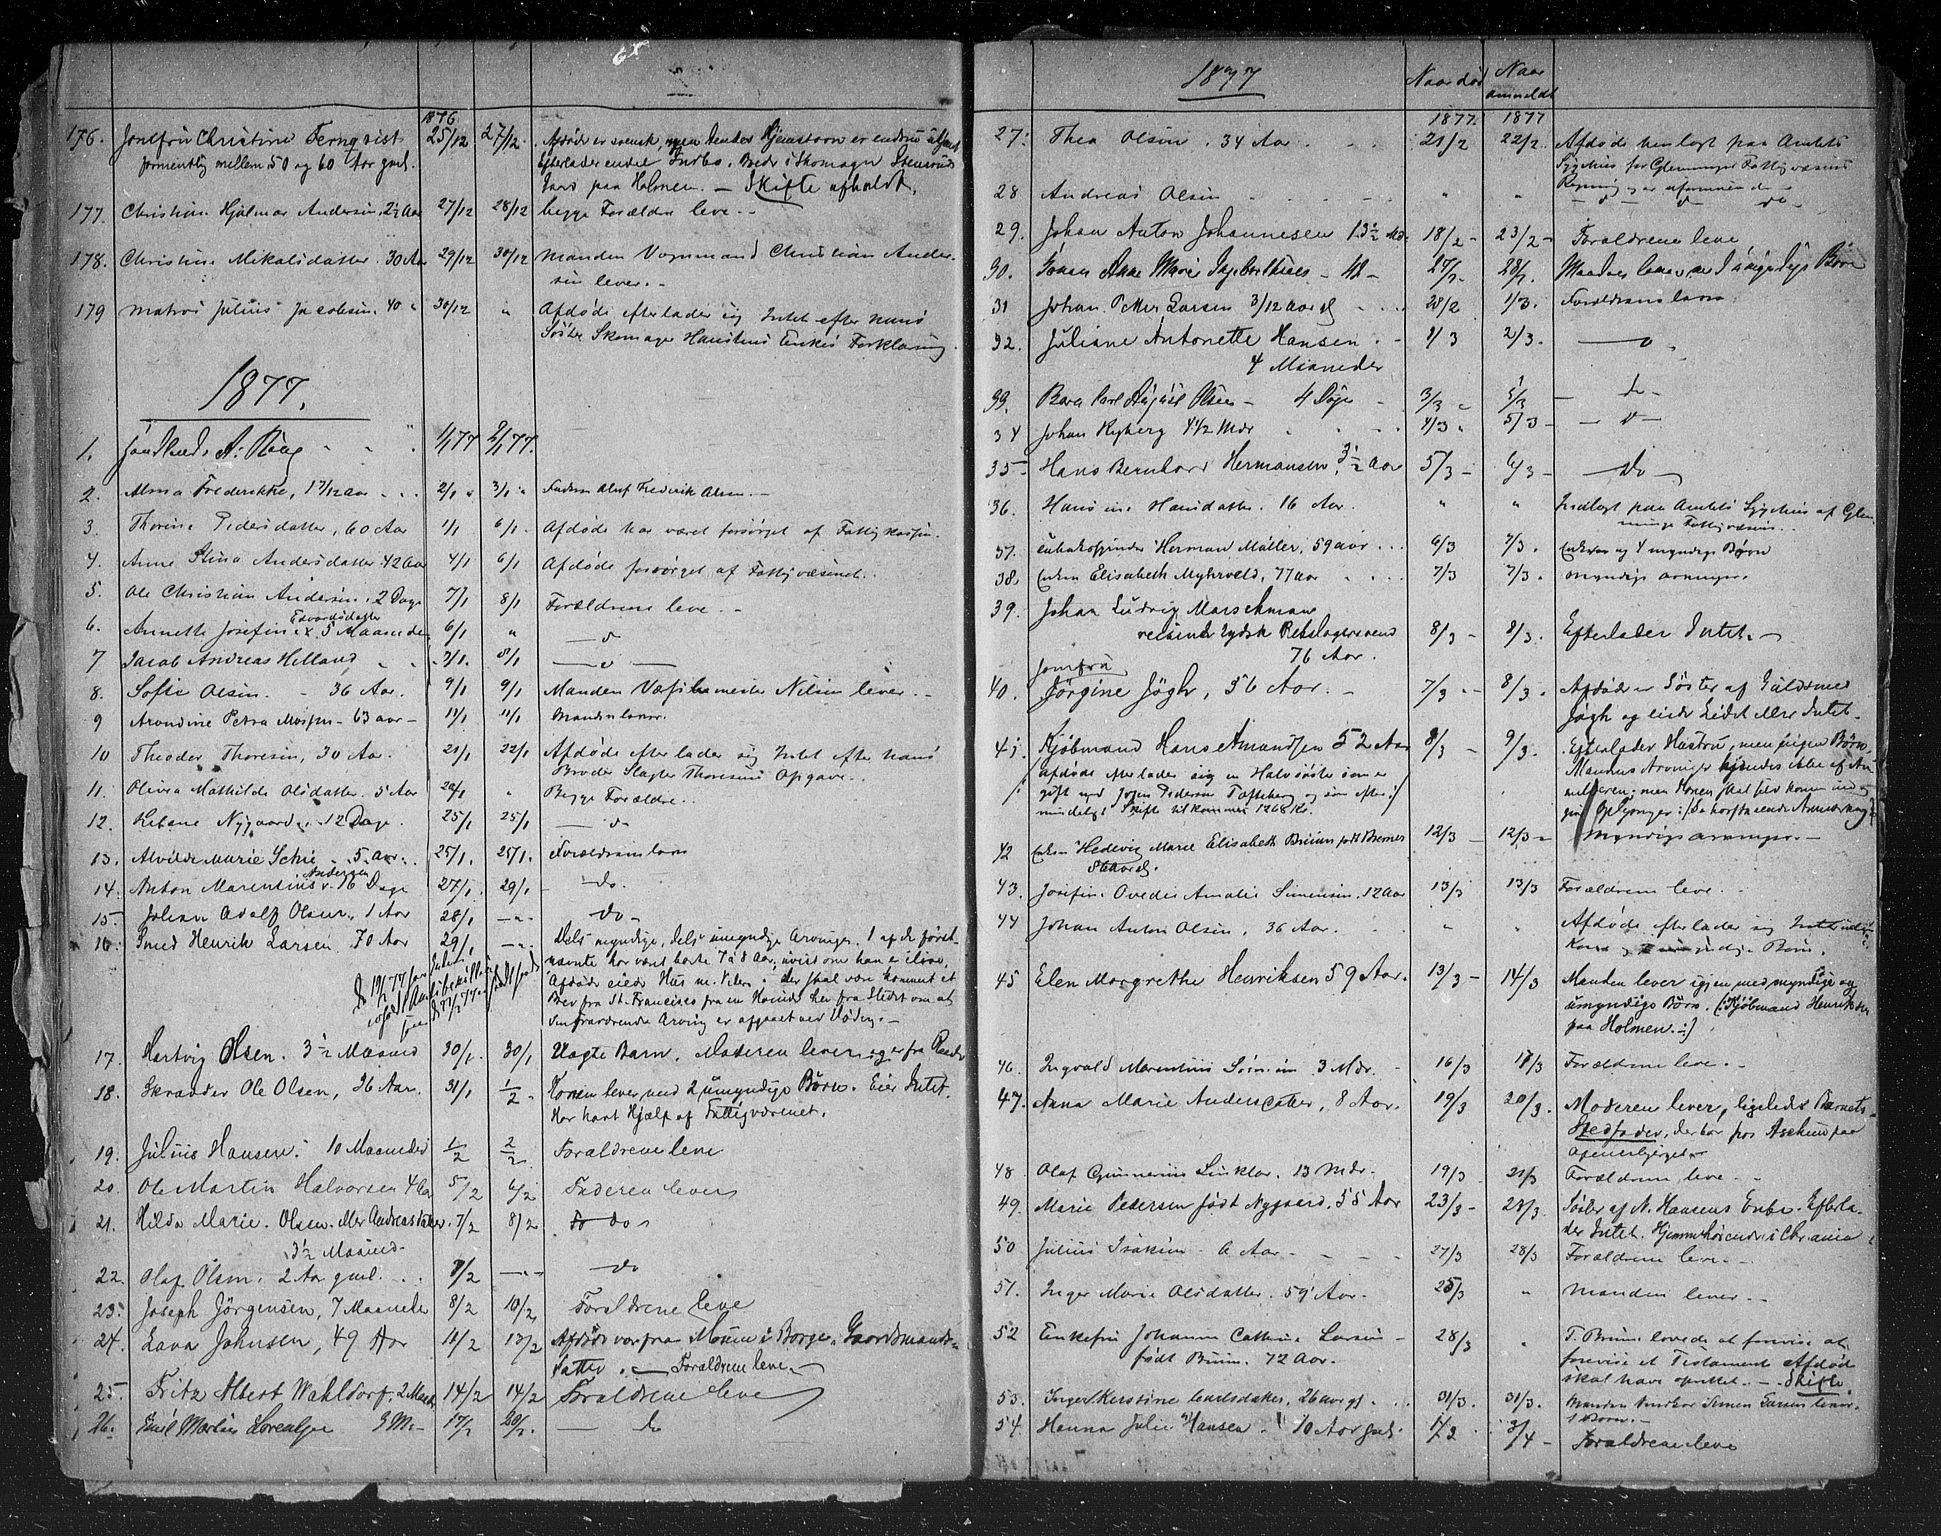 1876.
176. Jomfru Christine Fernqvist 25/12 27/12. Afdøde er svensk, men hendes Hjemstavn er endnu
formentlig mellem 50 og 60 Aar gml. Efterlader endel Indbo. Boede i Skomager Stensruds
Gaard paa Holmen. — Skifte afholdt.
177. Christian Hjalmar Andersen, 2½ Aar 27/12 28/12 begge Forældre leve. -
178. Christine Mikalsdatter. 30 Aar 29/12 30/12 Manden Vognmand Christian Ander-
sen lever. -
179 Matros Julius Jacobsen. 40 " 30/12 " Afdøde efterlader sig Intet efter hans
Søster Skomager Hanstens Enkes Forklaring.
1877.
1. A. Krag 1/1 77 2/1 77.
2. Alma Frederikke, 1 7/12 aar 2/1 3/1 Faderen Oluf Frederik Olsen. -
3. Thorine Pedersdatter, 60 Aar 1/1 6/1. Afdøde har været forsørget af Fattigkassen.
4. Anne Stina Andersdatter. 42 Aar 4/1 6/1 Afdøde forsørget af Fattigvæsenet.
5. Ole Christian Andersen. 2 Dage 7/1 8/1 Forældrene leve. -
6. Annette Josefine Edvardsdatter 5 Maaneder 6/1 " — do
7 Jacob Andreas Helland 7/1. 8/1 — do —
8. Sofie Olsen. - 36 Aar. 9/1 9/1 Manden Vægtermester Nilsen lever. -
9 Arondine Petra Mossen - 63 aar - 11/1 11/1 Manden lever.
10 Theodor Thoresen, 30 Aar. 21/1 22/1 Afdøde efterlader sig Intet efter hans
Broder Slagter Thoresens Opgave.
11. Olivia Mathilde Olsdatter. 5 Aar 20/1 " Begge Forældre.
12. Nygaard. 12 Dage. 25/1 25/1 — do
13. Alvilde Marie Schie - 5 aar. 25/1. 25/1. Forældrene leve
14. Anton Marentius Andersen 16 Dage 27/1. 29/1 - do.
15 Johan Adolf Olsen, 1 Aar 28/1 — " — do -
16. Smed Henrik Larsen. 70 Aar 29/1 — " . Dels myndige, dels umyndige Arvinger. 1 af de først-
nævnte har været borte 7 à 8 Aar, uvist om han er ilive.
Afdøde eiede Hus m. Viden. der skal være kommet et
Brev fra St. Francisco fra en Mand her fra Stedet om at
den fraværende Arving er afgaaet ved Døden. -
17. Hartvig Olsen. 3½ Maaned 30/1. 30/1 Uægte Barn. Moderen lever og er fra
18. Skrædder Ole Olsen, 36 Aar. 31/1 1/2 Konen lever med 2 umyndige Børn. Eier Intet.
Har havt Hjælp af Fattigvæsenet.
19. Julius Hansen. 10 Maaneder 1/2 2/2 Forældrene leve
20. Ole Martin Halvorsen 4 Aar 5/2 6/2 Faderen lever
21. Hilda Marie. Olsen. eller Andreasdatter 7/2 8/2 do
3½ Maaned.
22. Olaf Olsen. 2 Aar gml. 8/2 — " — do
23. Joseph Jörgensen, 7 Maaneder 8/2 10/2 Forældrene leve
24. Lava Johnsen, 49 Aar 11/2 13/2 Afdøde var fra Moum i Borge. Gaardmands-
datter. — Forældrene leve. -
25. Fritz Albert Wahldorf. 2 Maaneder 14/2 14/2 Forældrene leve
26. Emil Martin Lorentzen 9 M. - 17/2 20/2. — do
1877 Naar død Naar anmeldt
1877. 1877
27. Thea Olsen. 34 Aar 21/2 22/2. Afdøde henlagt paa Amtets
Sygehus for Glemminge Fattigvæsens
Regning og er uformuende -
28 Andreas Olsen " " - d - d - do -
29. Johan Anton Johannesen 13½ Mdr. 18/2 - 23/2 - Forældrene leve
30. Konen Ane Marie Ingebretsen - 42 - 27/2 28/2. Manden lever
31 Johan Petter Larsen 3/12 Aar gl 28/2 1/3. Forældrene leve
32. Juliane Antonette Hansen. - 1/3 2/3. — do .
4 Maaneder
33. Barn Carl August Olsen - 4 Dage - 3/3 - 5/3 — do -
34 Johan Ryberg 4½ Mdr 4/3. 5/3 - - do -
35 Hans Bernhard Hermansen, 3½ Aar 5/3 - 6/3 - do -
36. Hansine Hansdatter. 16 Aar. " " Indlagt paa Amtets Sygehus af Glem-
minge Fattigvæsen.
37. Herman Müller, 59 aar 6/3 7/3. Enken og 4 myndige Børn
38. Enken Elisabeth Myhrveld, 77 aar 7/3 7/3. Myndige arvinger.
39. Johan Ludvig Marschmann
reisende tydsk Rebslagersvend 8/3 - 8/3. Efterlader Intet. -
76 Aar.
40. Jomfru Jörgine Jögh, 56 Aar. - 7/3 - 8/3. Afdøde er Søster af Guldsmed
Jögh og eiede Lidet eller Intet.
41. Kjøbmand Hans Amundsen 52 Aar 8/3 - 9/3. Efterlader Hustru, men ingen Børn.
/: afdøde efterlader sig en Halvsøster som er Mandens Arvinger kjendes ikke af An-
gift med Jørgen Pedersen Tofteberg og som efter :/ melderen; men Konen skal selv komme ind og
mindeligt Skifte tilkommer 1268 Kr.
42 Enken Hedevig Marie Elisabeth Bruun født Bremer 12/3 - 12/3 - Myndige arvinger. -
43. Josefine Ovedia Amalie Simensen, 12 Aar 13/3 13/3 Forældrene leve.
44 Johan Anton Olsen, 36 Aar. " " Afdøde efterlader sig Intet uden
Kone og umyndige Børn.
45 Elen Margrethe Henriksen 59 Aar. 13/3 - 14/3 Manden lever igjen med myndige og
umyndige Børn. (Kjøbmand Henriksen
paa Holmen. :/
46. Ingvald Marentius Sörensen 3 Mdr. - 16/3 17/3 Forældrene leve. -
47. Anna Marie Andersdatter, 8 Aar. 19/3 20/3. Moderen lever, ligeledes Barnets
Stedfader, der bor hos Aschim paa
48 Olaf Gunnerius Sinklar. 13 Mdr. 19/3 21/3 Forældrene leve. - -
49. Marie Pedersen født Nygaard, 55 Aar 23/3 - 24/3. Søster af N. Hansens Enke. Efterla-
der Intet. Hjemmehørende i Chrania
50 Julius Isaksen. 6 Aar. - - - 27/3 28/3 Forældrene leve. -
51. Inger Marie Olsdatter. 59 Aar. 25/3 " Manden lever. -
52 Enkefru Johanne Cathrine Larsen - 28/3 " T. Bruun lovede at forevise at
født Bruun. 72 Aar. forevise et Testament Afdøde
skal have oprettet. - Skifte.
53. Inger Kerstine Carlsdatter, 26 aar gl. 31/3. 31/3 Manden Simon Larsen lever
1 Barn. -
54. Hanna Julie Hansen. 10 Aar gml. 1/2 3/4 - Forældrene leve